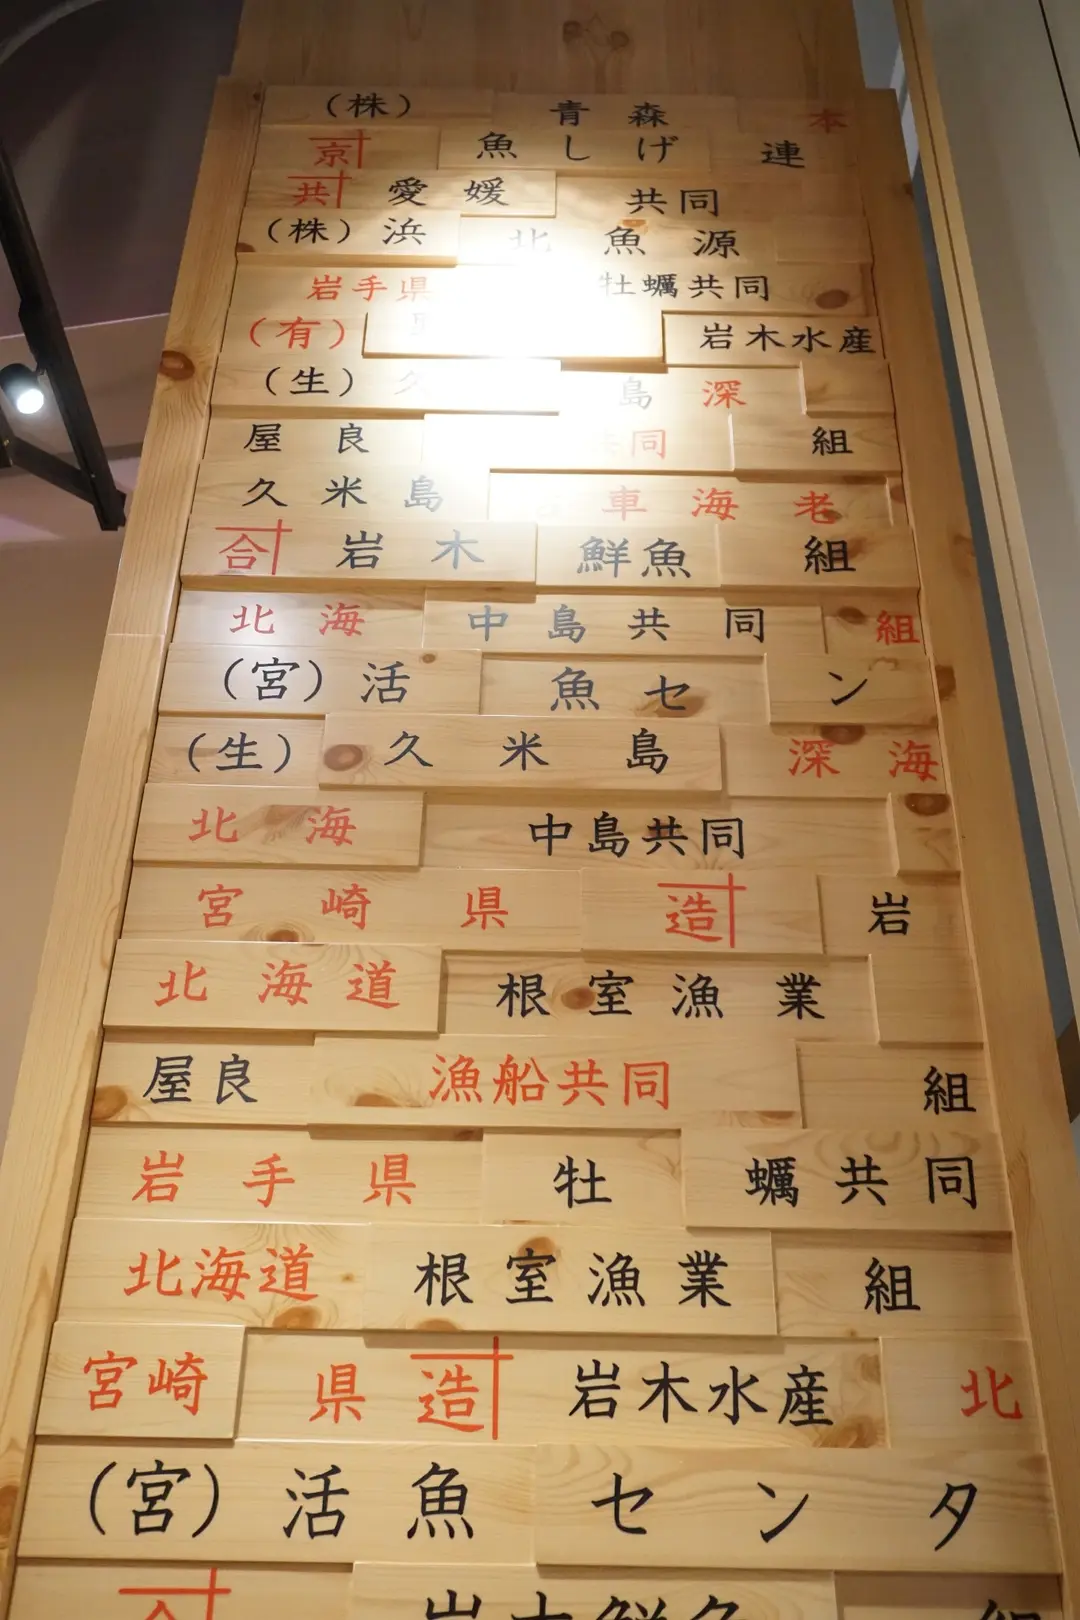 （株） 青森 本
京 魚しげ 連
共 愛媛 共同
（株）浜 北魚源
岩手県 牡蠣共同
（有） 岩木水産
（生）久 島深
屋良 同 組
久米島 車海老
合 岩木 鮮魚 組
北海 中島共同 組
（宮）活魚セン
（生）久米島 深海
北海 中島共同
宮崎県 造 岩
北海道 根室漁業
屋良 漁船共同 組
岩手県 牡蠣共同
北海道 根室漁業 組
宮崎県 造 岩木水産 北
（宮）活魚センタ